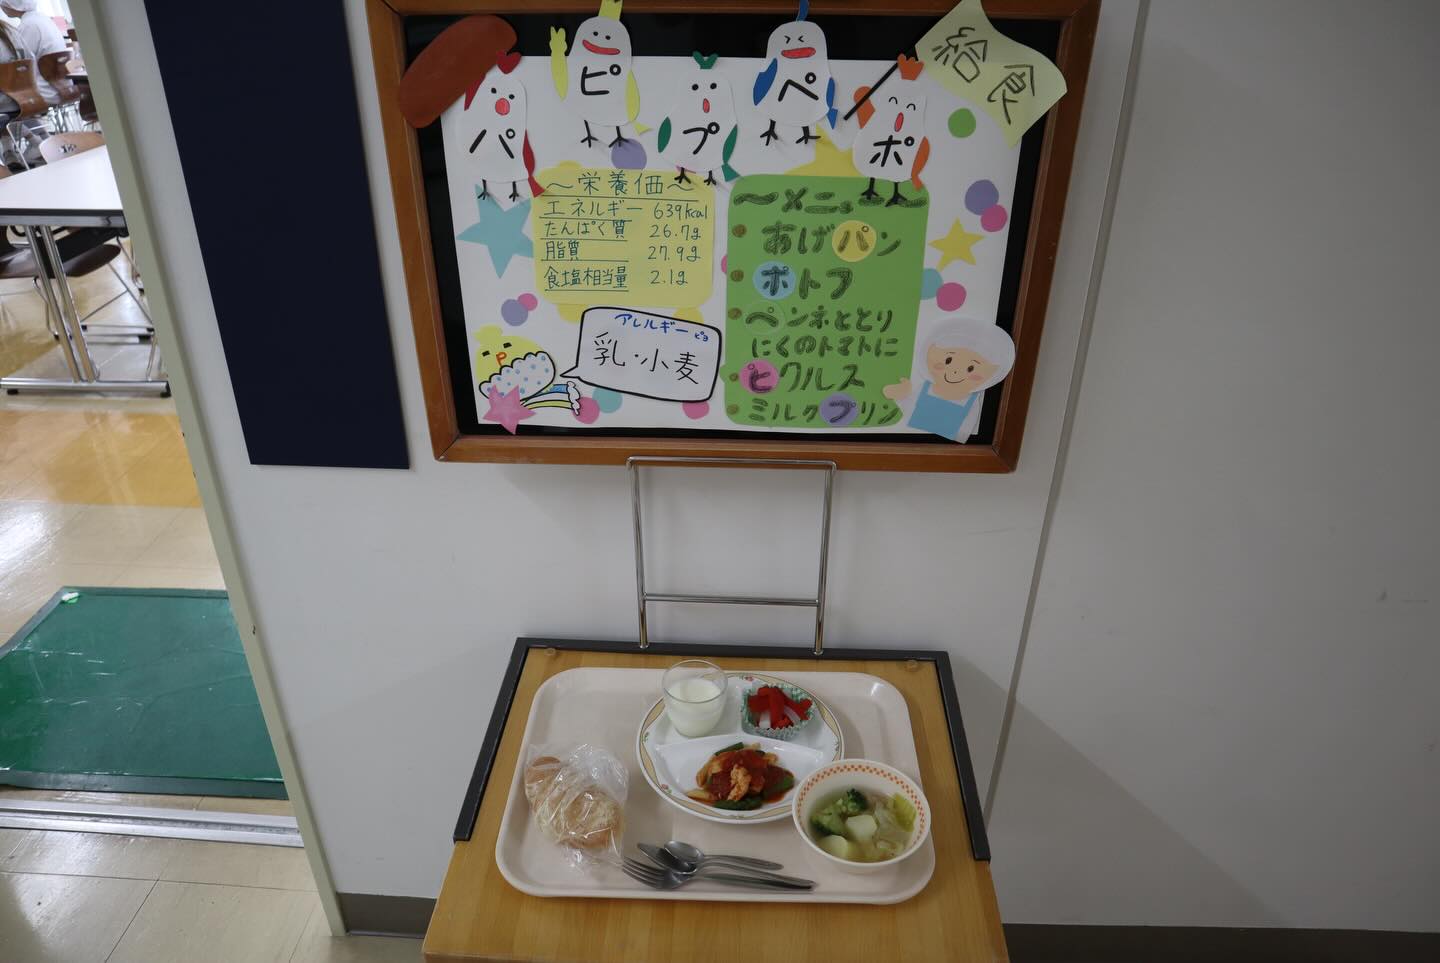 パ
ピ
プ
ペ
ポ
給食
～栄養価～
エネルギー 639kcal
たんぱく質 26.7g
脂質 27.9g
食塩相当量 2.1g
アレルギーピヨ
乳・小麦
～メニュー～
あげパン
ポトフ
ペンネととり
にくのトマトに
ピクルス
ミルクプリン